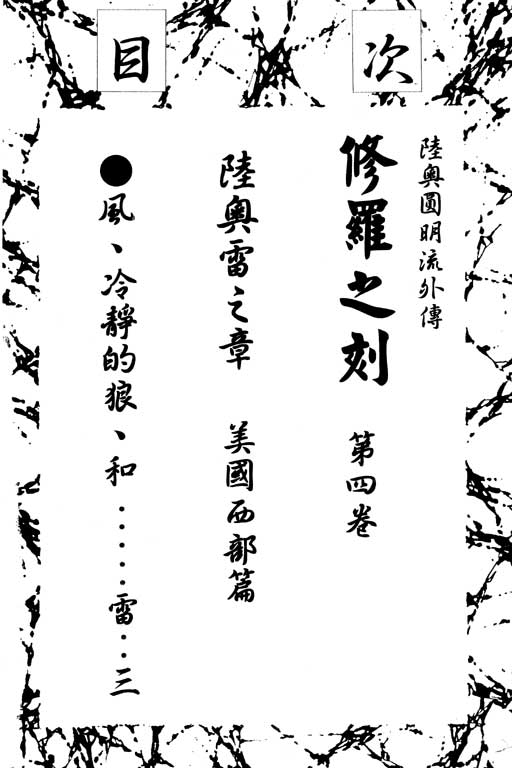 目次
陸奧圓明流外傳
修羅之刻 第四卷
陸奧雷之章 美國西部篇
●風、冷靜的狼、和……雷‥三